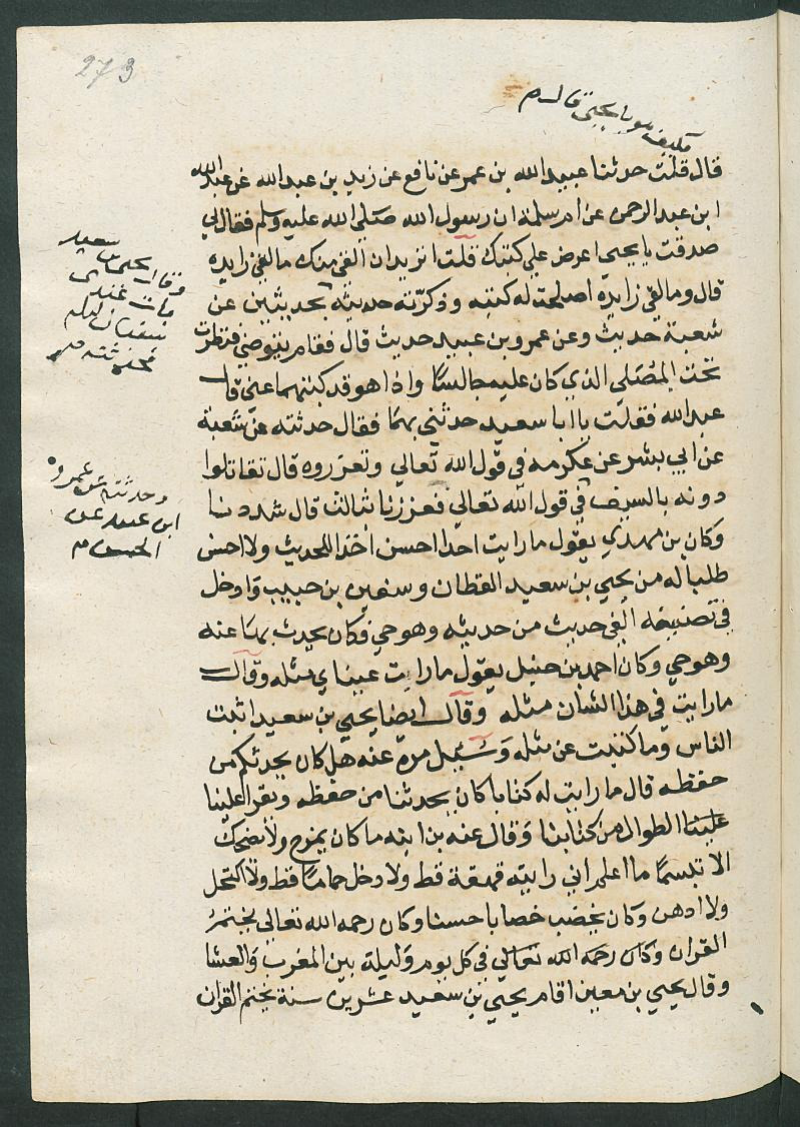 273
فكيف هو يا يحيى قال
قال قلت حدثنا عبيد الله بن عمر عن نافع عن زيد بن عبد الله عن عبد الله
ابن عبد الرحمن عن ام سلمة ان رسول الله صلى الله عليه وسلم فقال لي
صدقت يا يحيى اعرض علي كتبك قلت اتريد ان القى منك ما لقي زايده
قال وما لقي زايدة اصلحت له كتبه وذكرته حديثه بحديثين عن
شعبة حديث وعن عمرو بن عبيد حديث قال فقام يتوضي فنظرت
تحت المصلى الذي كان عليه جالسا واذا هو قد كتبهما عني قال
عبد الله فقلت يا ابا سعيد حدثني بهما فقال حدثته عن شعبة
عن ابي بشر عن عكرمه في قول الله تعالى وتعزروه قال تقاتلوا
دونه بالسيف في قول الله تعالى فعززنا بثالث قال شددنا
وكان بن مهدي يقول ما رايت احدا احسن اخذا للحديث ولا احسن
طلبا له من يحيى بن سعيد القطان وسفين بن حبيب وادخل
في تصنيفه الفي حديث من حديثه وهو حي فكان يحدث بها عنه
وهو حي وكان احمد بن حنبل يقول ما رات عيناي مثله وقال
ما رايت في هذا الشان مثله وقال ايضا يحيى بن سعيد اثبت
الناس وما كتبت عن مثله وسئل مرة عنه هل كان يحدثكم من
حفظه قال ما رايت له كتابا كان يحدثنا من حفظه ويقرا علينا
علينا الطوال من كتابنا وقال عنه بن ابنه ما كان يمزح ولا يضحك
الا تبسما ما اعلم اني رايته قهقهة قط ولا دخل حماما قط ولا اكتحل
ولا ادهن وكان يخضب خضابا حسنا وكان رحمه الله تعالى يختم
القران وكان رحمه الله تعالى في كل يوم وليلة بين المغرب والعشا
وقال يحيى بن معين اقام يحيى بن سعيد عشرين سنة يختم القران
وقال يحيى بن سعيد
بات عندي
سفيان ليلة
فحدثته
وحدثته عن عمرو
ابن عبيد عن
الحسن